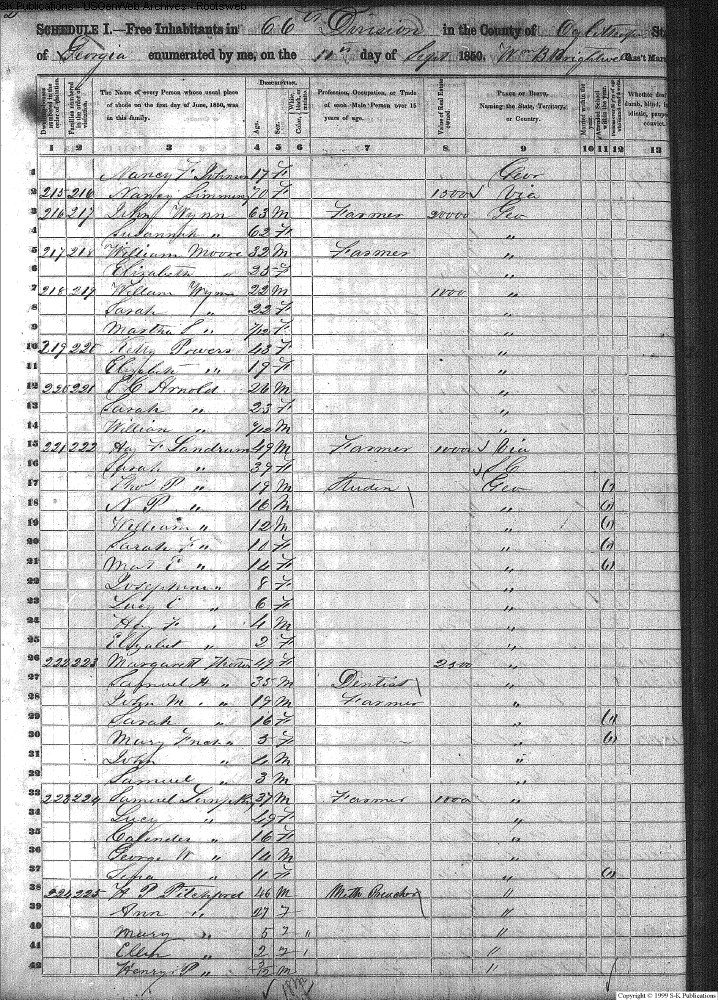 S-K Publications - USGenWeb Archives - Rootsweb
SCHEDULE I.—Free Inhabitants in 66th Division in the County of Oglethorpe St
of Georgia enumerated by me, on the 10th day of Sept 1850. Wm B Brightwell Ass't Mars
DESCRIPTION.
Dwelling-houses numbered in the order of visitation. Families numbered in the order of visitation. The Name of every Person whose usual place of abode on the first day of June, 1850, was in this family. Age. Sex. White, black, or mulatto. Color Profession, Occupation, or Trade of each Male Person over 15 years of age. Value of Real Estate owned PLACE OF BIRTH, Naming the State, Territory, or Country. Married within the year. Attended School within the year. Whether deaf dumb, blind, convict.
1 2 3 4 5 6 7 8 9 10 11 12 13
1 Nancy F Johnson 17 F Geor
2 215 216 Nancy 70 F 1500 Via
3 216 217 John Wynn 63 M Farmer 20000 Geo
4 Susannah " 62 F "
5 217 218 William Moore 32 M Farmer "
6 Elizabeth " 25 F "
7 218 219 William Wynn 22 M 1000 "
8 Sarah " 22 F "
9 Martha S " /12 F "
10 219 220 Kitty Powers 43 F "
11 Elizabeth " 19 F "
12 220 221 Arnold 26 M "
13 Sarah " 23 F "
14 William " /12 M "
15 221 222 Hay F Landrum 49 M Farmer 1000 Via
16 Sarah " 39 F SC
17 Tho P " 19 M Studen Geo (1)
18 N P " 16 M " (1)
19 William " 12 M " (1)
20 Sarah F " 10 F " (1)
21 Mar E " 14 F " (1)
22 Josephine " 8 F "
23 Lucy C " 6 F "
24 Hay F " 4 M "
25 Elizabet " 2 F "
26 222 223 Margarett 49 F "
27 Samuel H " 35 M Dentist "
28 John M. " 19 M Farmer "
29 Sarah " 16 F " (1)
30 Mary " 5 F " (1)
31 John " 4 M "
32 Samuel " 3 M "
33 223 224 Samuel Lumpkin 37 M Farmer 1000 "
34 Lucy " 49 F "
35 " 16 F "
36 George W " 14 M "
37 " 11 F " (1)
38 224 225 H P Pitchford 46 M Meth Preacher "
39 Ann " 27 F "
40 Mary " 5 F "
41 Ellen " 2 F "
42 Henry P " /12 M "
Copyright © 1999 S-K Publications